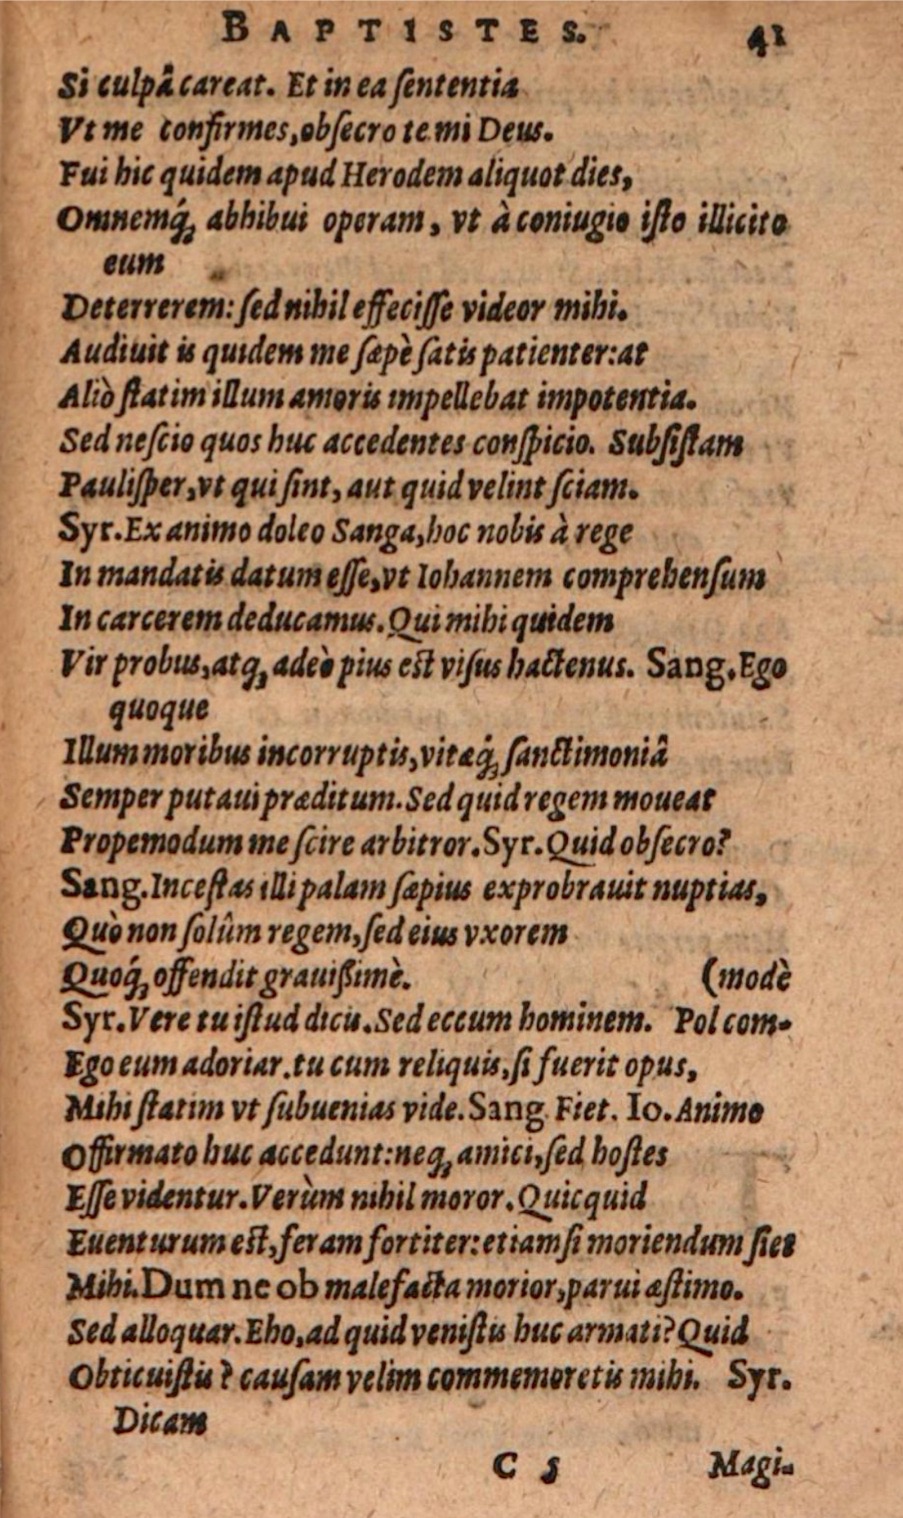 BAPTISTES. 41
Si culpâ careat. Et in ea ſententia
Vt me confirmes, obſecro te mi Deus.
Fui hic quidem apud Herodem aliquot dies,
Omnemq́; abhibui operam, vt à coniugio iſto illicito
eum
Deterrerem: ſed nihil effeciſſe videor mihi.
Audiuit is quidem me ſæpè ſatis patienter: at
Aliò ſtatim illum amoris impellebat impotentia.
Sed neſcio quos huc accedentes conſpicio. Subſiſtam
Pauliſper, vt qui ſint, aut quid velint ſciam.
Syr. Ex animo doleo Sanga, hoc nobis à rege
In mandatis datum eſſe, vt Iohannem comprehenſum
In carcerem deducamus. Qui mihi quidem
Vir probus, atq; adeò pius eſt viſus hactenus. Sang. Ego
quoque
Illum moribus incorruptis, vitæq́; ſanctimoniâ
Semper putaui præditum. Sed quid regem moueat
Propemodum me ſcire arbitror. Syr. Quid obſecro?
Sang. Inceſtas illi palam ſæpius exprobrauit nuptias,
Quò non ſolûm regem, ſed eius vxorem
Quoq́; offendit grauißimè. (modè
Syr. Vere tu iſtud dicis. Sed eccum hominem. Pol com-
Ego eum adoriar. tu cum reliquis, ſi fuerit opus,
Mihi ſtatim vt ſubuenias vide. Sang. Fiet. Io. Animo
Offirmato huc accedunt: neq; amici, ſed hoſtes
Eſſe videntur. Verùm nihil moror. Quicquid
Euenturum eſt, feram fortiter: etiamſi moriendum ſiet
Mihi. Dum ne ob malefacta morior, parui æſtimo.
Sed alloquar. Eho, ad quid veniſtis huc armati? Quid
Obticuiſtis? cauſam velim commemoretis mihi. Syr.
Dicam
C 5 Magi-